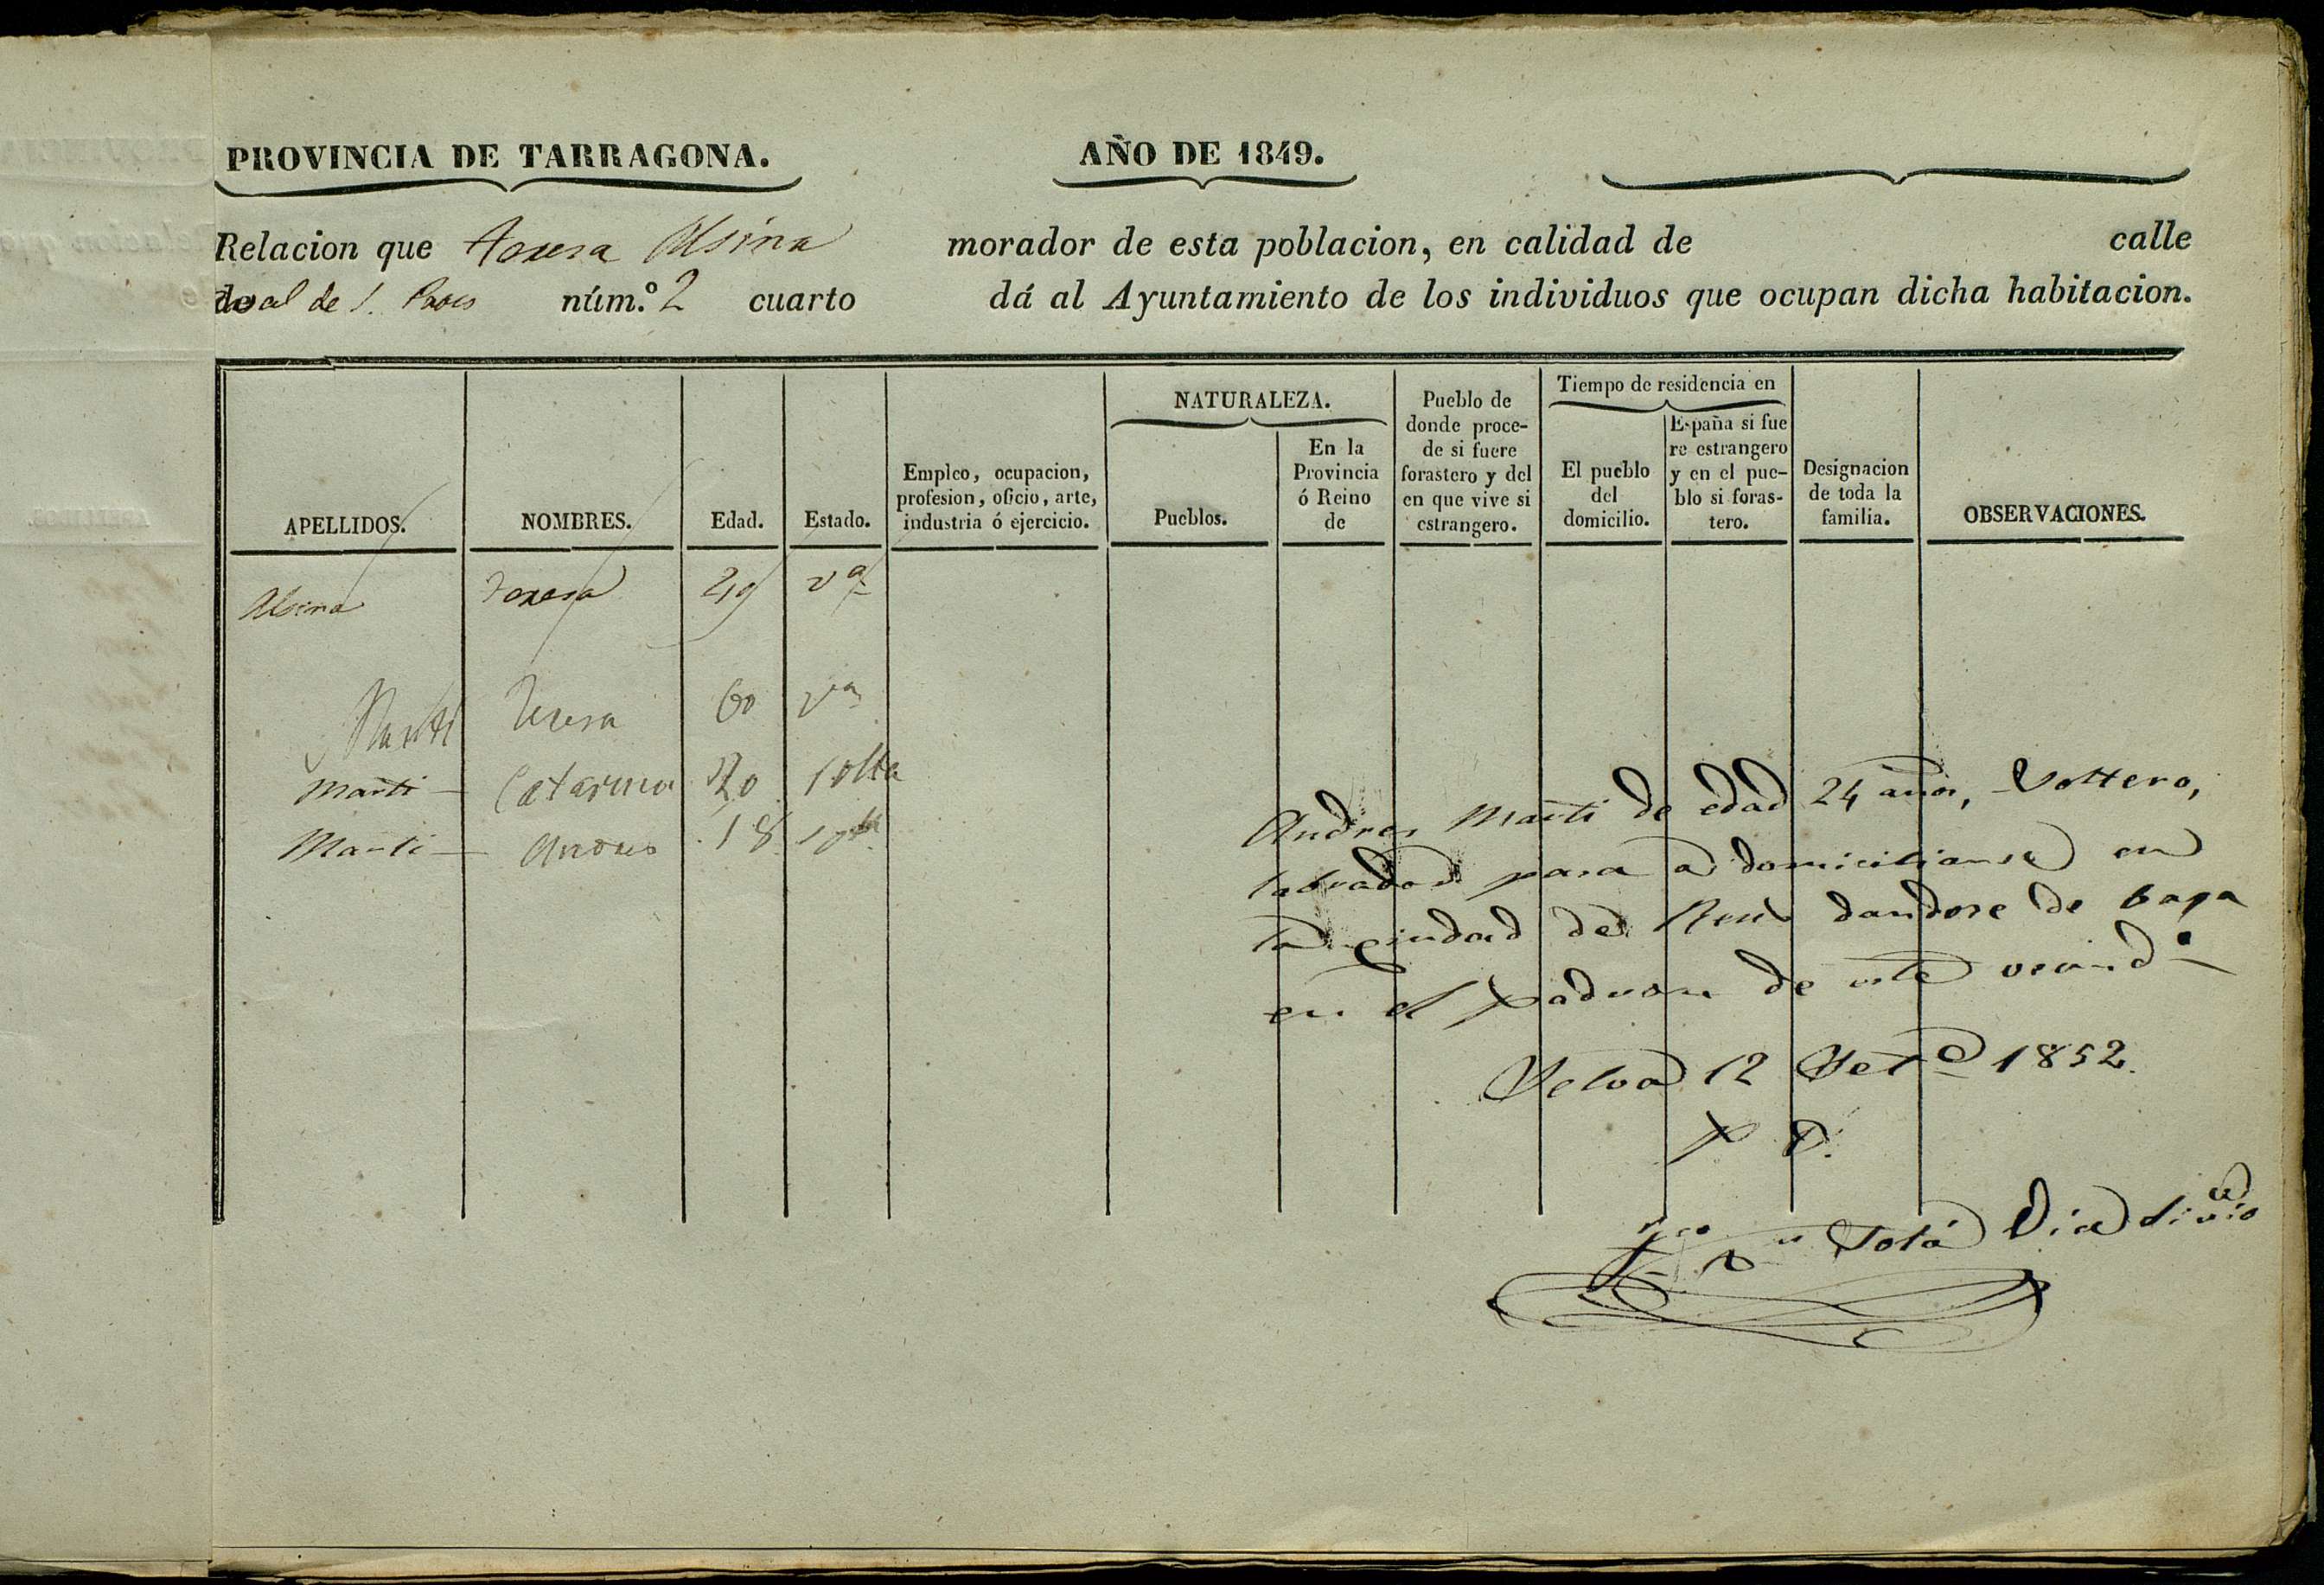 PROVINCIA DE TARRAGONA.
AÑO DE 1849.
Relacion que Teresa Alsina morador de esta poblacion, en calidad de calle
de núm.º 2 cuarto dá al Ayuntamiento de los individuos que ocupan dicha habitacion.
APELLIDOS.
NOMBRES.
Edad.
Estado.
Empleo, ocupacion,
profesion, oficio, arte,
industria ó ejercicio.
NATURALEZA.
Pueblos.
En la
Provincia
ó Reino
de
Pueblo de
donde proce-
de si fuere
forastero y del
en que vive si
estrangero.
Tiempo de residencia en
El pueblo
del
domicilio.
España si fue
re estrangero
y en el pue-
blo si foras-
tero.
Designacion
de toda la
familia.
OBSERVACIONES.
Alsina Teresa vª
Marti Teresa 60 vª
Marti – Catarina 20 soltª
Marti – Andres 18
Andres Marti de edad 24 años, Soltero,
labrador pasa a domiciliarse en
la ciudad de Reus dandose de baja
en el padron de este vecindº
Selva 12 Setᵉ 1852.
P. D.
Solá